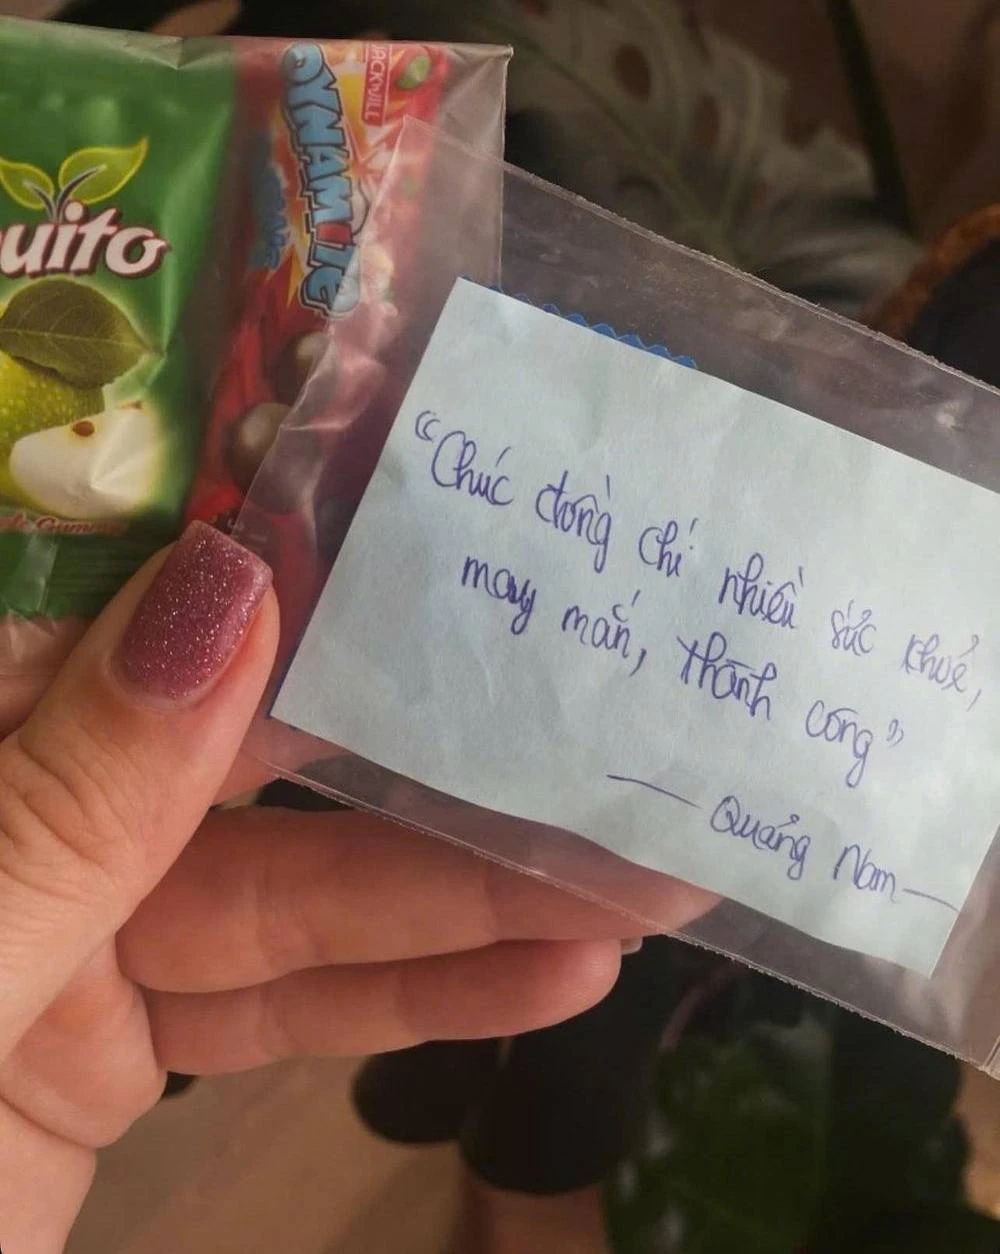 uito
JACK'n JILL
DYNAMITE
“Chúc đồng chí nhiều sức khoẻ,
may mắn, thành công”
— Quảng Nam —